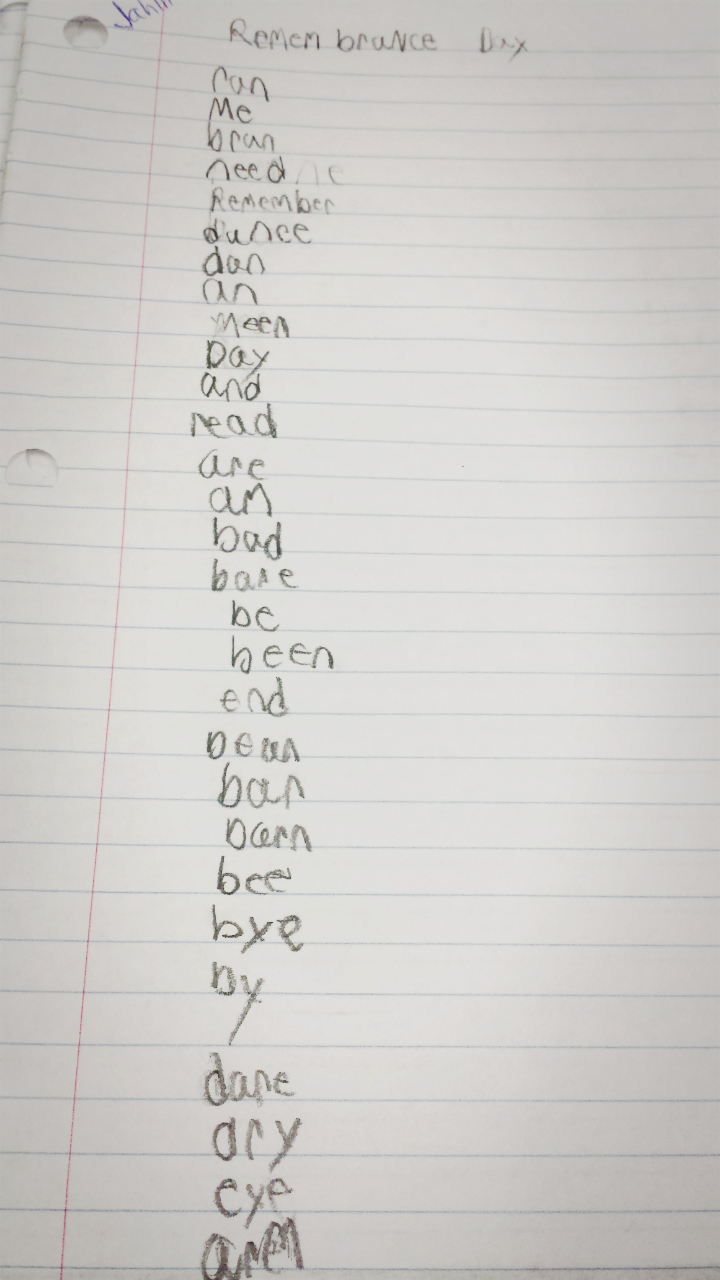 Remembrance Day
ran
Me
bran
need
Remember
dance
dan
an
meen
Day
and
read
are
am
bad
bare
be
been
end
Dean
bar
barn
bee
bye
by
dare
dry
eye
arm